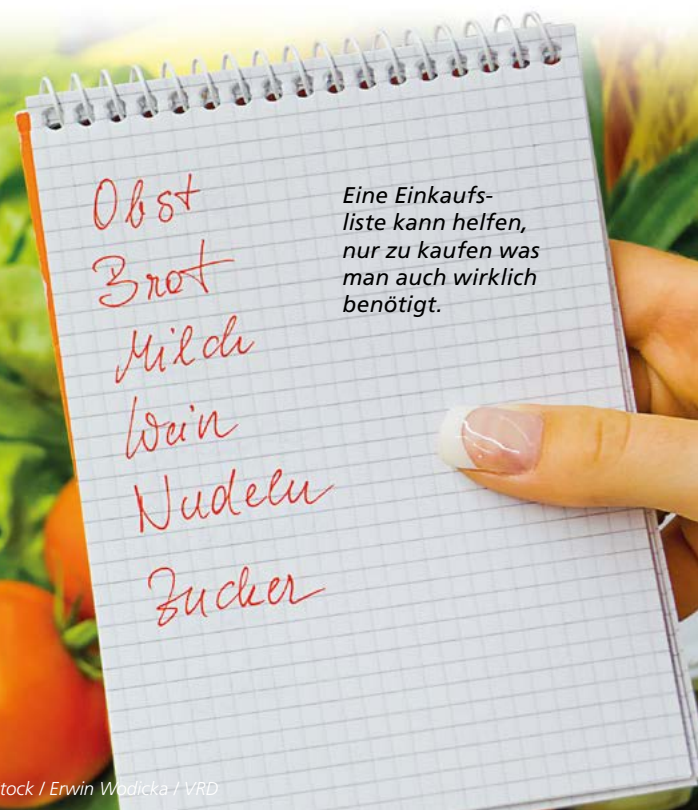 Obst
Brot
Milch
Wein
Nudeln
Zucker
Eine Einkaufs-
liste kann helfen,
nur zu kaufen was
man auch wirklich
benötigt.
tock / Erwin Wodicka / VRD